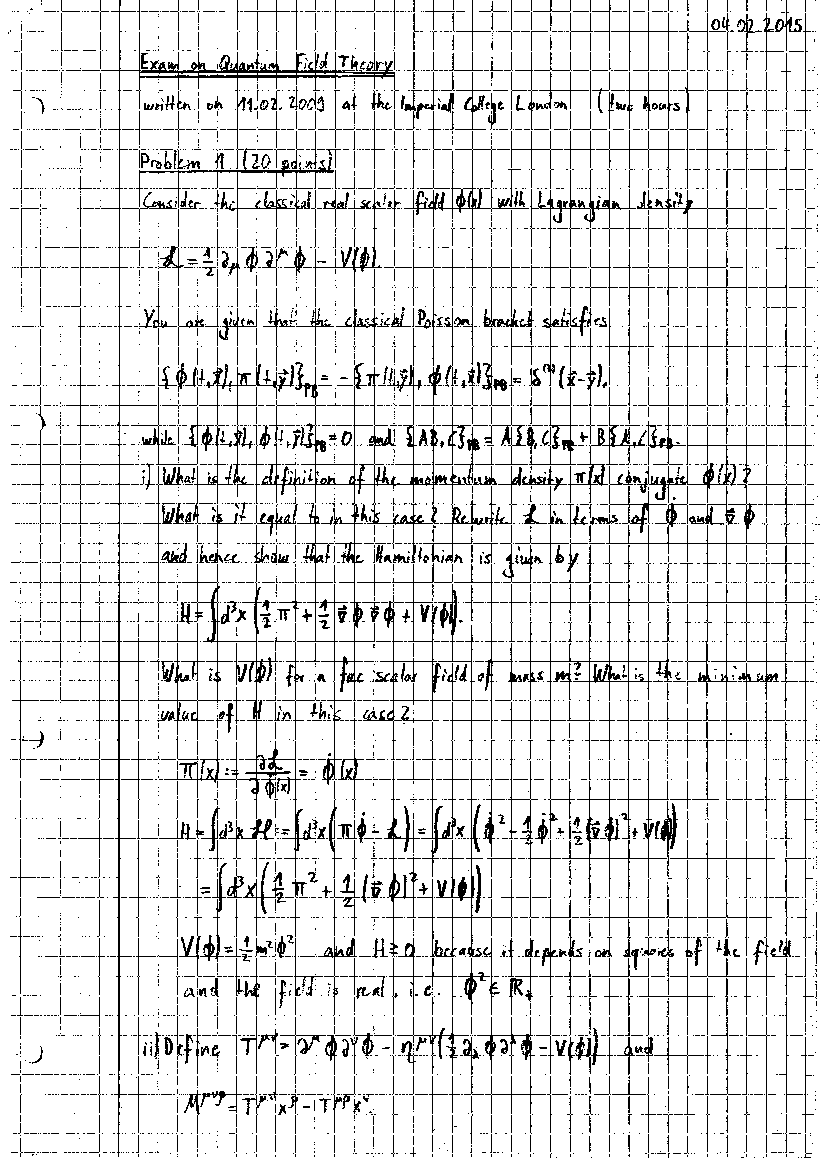 04.02.2015
Exam on Quantum Field Theory
written on 11.02.2009 at the Imperial College London (two hours)
Problem 1 (20 points)
Consider the classical real scalar field ϕ(x) with Lagrangian density
ℒ = 1/2 ∂_μ ϕ ∂^μ ϕ - V(ϕ).
You are given that the classical Poisson bracket satisfies
{ϕ(t,x⃗), π(t,y⃗)}_PB = -{π(t,y⃗), ϕ(t,x⃗)}_PB = δ^(3)(x⃗-y⃗),
while {ϕ(t,x⃗), ϕ(t,y⃗)}_PB = 0 and {AB,C}_PB = A{B,C}_PB + B{A,C}_PB.
i) What is the definition of the momentum density π(x) conjugate ϕ(x)?
What is it equal to in this case? Rewrite ℒ in terms of ϕ̇ and ∇⃗ϕ
and hence show that the Hamiltonian is given by
H = ∫d³x (1/2 π² + 1/2 ∇⃗ϕ ∇⃗ϕ + V(ϕ)).
What is V(ϕ) for a free scalar field of mass m? What is the minimum
value of H in this case?
π(x) := ∂ℒ/∂ϕ̇(x) = ϕ̇(x)
H = ∫d³x ℋ = ∫d³x (πϕ̇ - ℒ) = ∫d³x (ϕ̇² - 1/2 ϕ̇² + 1/2 (∇⃗ϕ)² + V(ϕ))
= ∫d³x (1/2 π² + 1/2 (∇⃗ϕ)² + V(ϕ))
V(ϕ) = 1/2 m²ϕ² and H ≥ 0 because it depends on squares of the field
and the field is real, i.e. ϕ² ∈ ℝ₊
ii) Define T^μν = ∂^μ ϕ ∂^ν ϕ - η^μν (1/2 ∂_λ ϕ ∂^λ ϕ - V(ϕ)) and
M^μνρ = T^μν x^ρ - T^μρ x^ν.